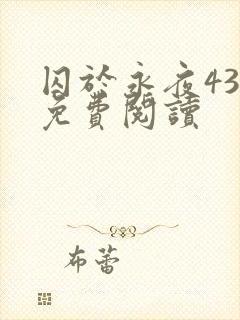 囚於永夜43
免費閱讀
布蕾